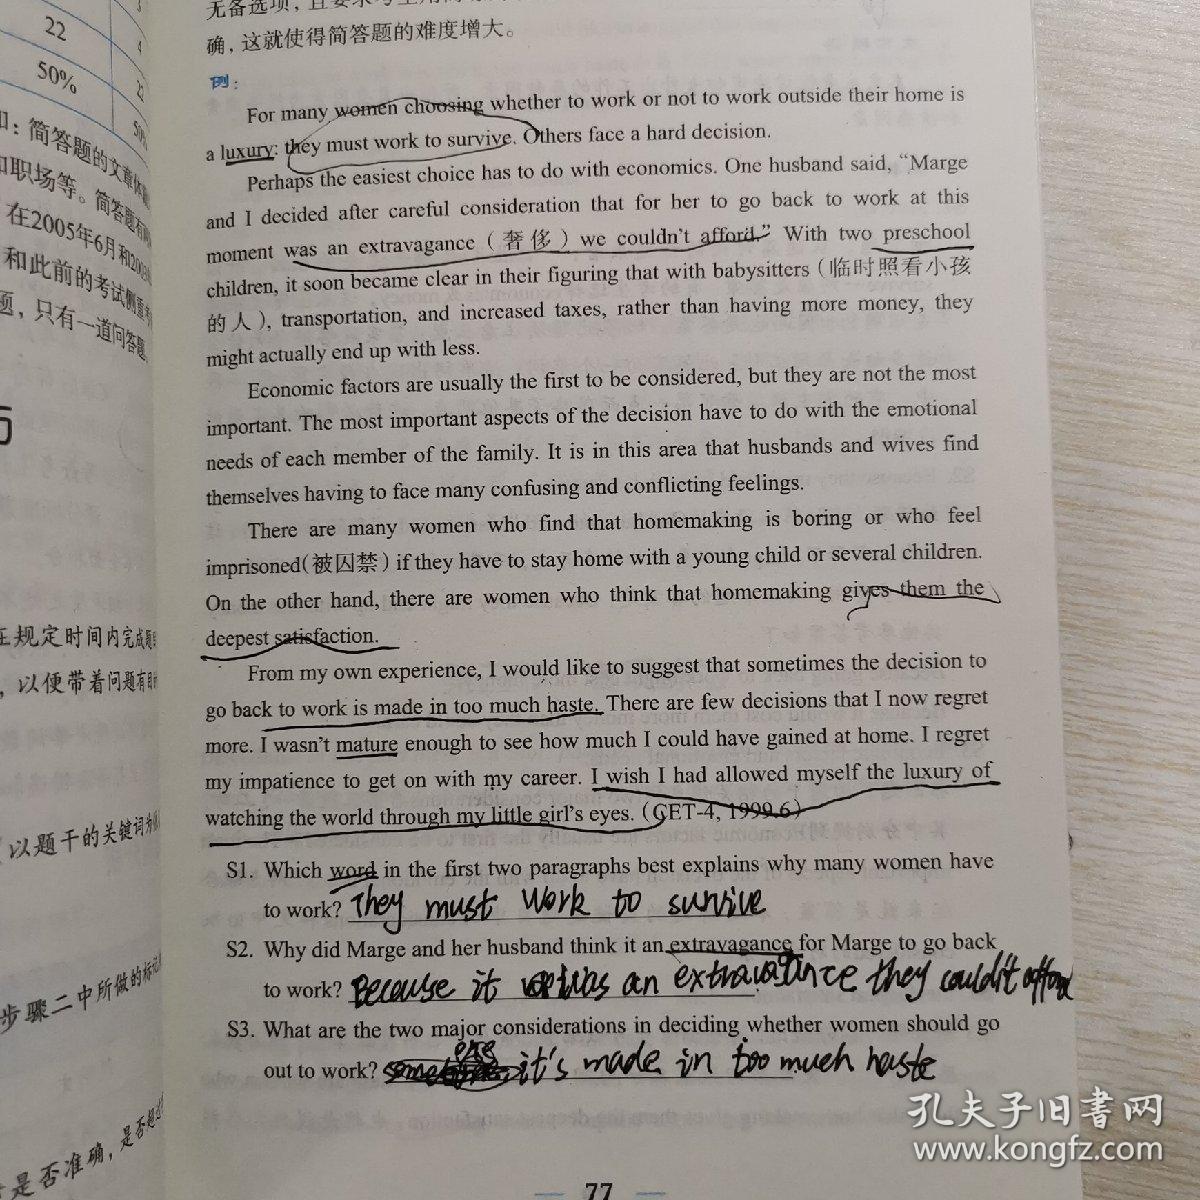 22
4
50%
22
50%
如：简答题的文章体裁
和职场等。简答题有
在2005年6月和200
和此前的考试侧重
题，只有一道问答题
巧
在规定时间内完成题
，以便带着问题有目
以题干的关键词为
步骤二中所做的标记
是否准确，是否超过
确，这就使得简答题的难度增大。
例：
For many women choosing whether to work or not to work outside their home is
a luxury: they must work to survive. Others face a hard decision.
Perhaps the easiest choice has to do with economics. One husband said, “Marge
and I decided after careful consideration that for her to go back to work at this
moment was an extravagance（奢侈）we couldn't afford.” With two preschool
children, it soon became clear in their figuring that with babysitters（临时照看小孩
的人）, transportation, and increased taxes, rather than having more money, they
might actually end up with less.
Economic factors are usually the first to be considered, but they are not the most
important. The most important aspects of the decision have to do with the emotional
needs of each member of the family. It is in this area that husbands and wives find
themselves having to face many confusing and conflicting feelings.
There are many women who find that homemaking is boring or who feel
imprisoned(被囚禁) if they have to stay home with a young child or several children.
On the other hand, there are women who think that homemaking gives them the
deepest satisfaction.
From my own experience, I would like to suggest that sometimes the decision to
go back to work is made in too much haste. There are few decisions that I now regret
more. I wasn't mature enough to see how much I could have gained at home. I regret
my impatience to get on with my career. I wish I had allowed myself the luxury of
watching the world through my little girl's eyes.（CET-4, 1999.6）
S1. Which word in the first two paragraphs best explains why many women have
to work? They must work to survive
S2. Why did Marge and her husband think it an extravagance for Marge to go back
to work? Because it was an extravagance they couldn't afford
S3. What are the two major considerations in deciding whether women should go
out to work? it's made in too much haste
77
孔夫子旧书网
www.kongfz.com